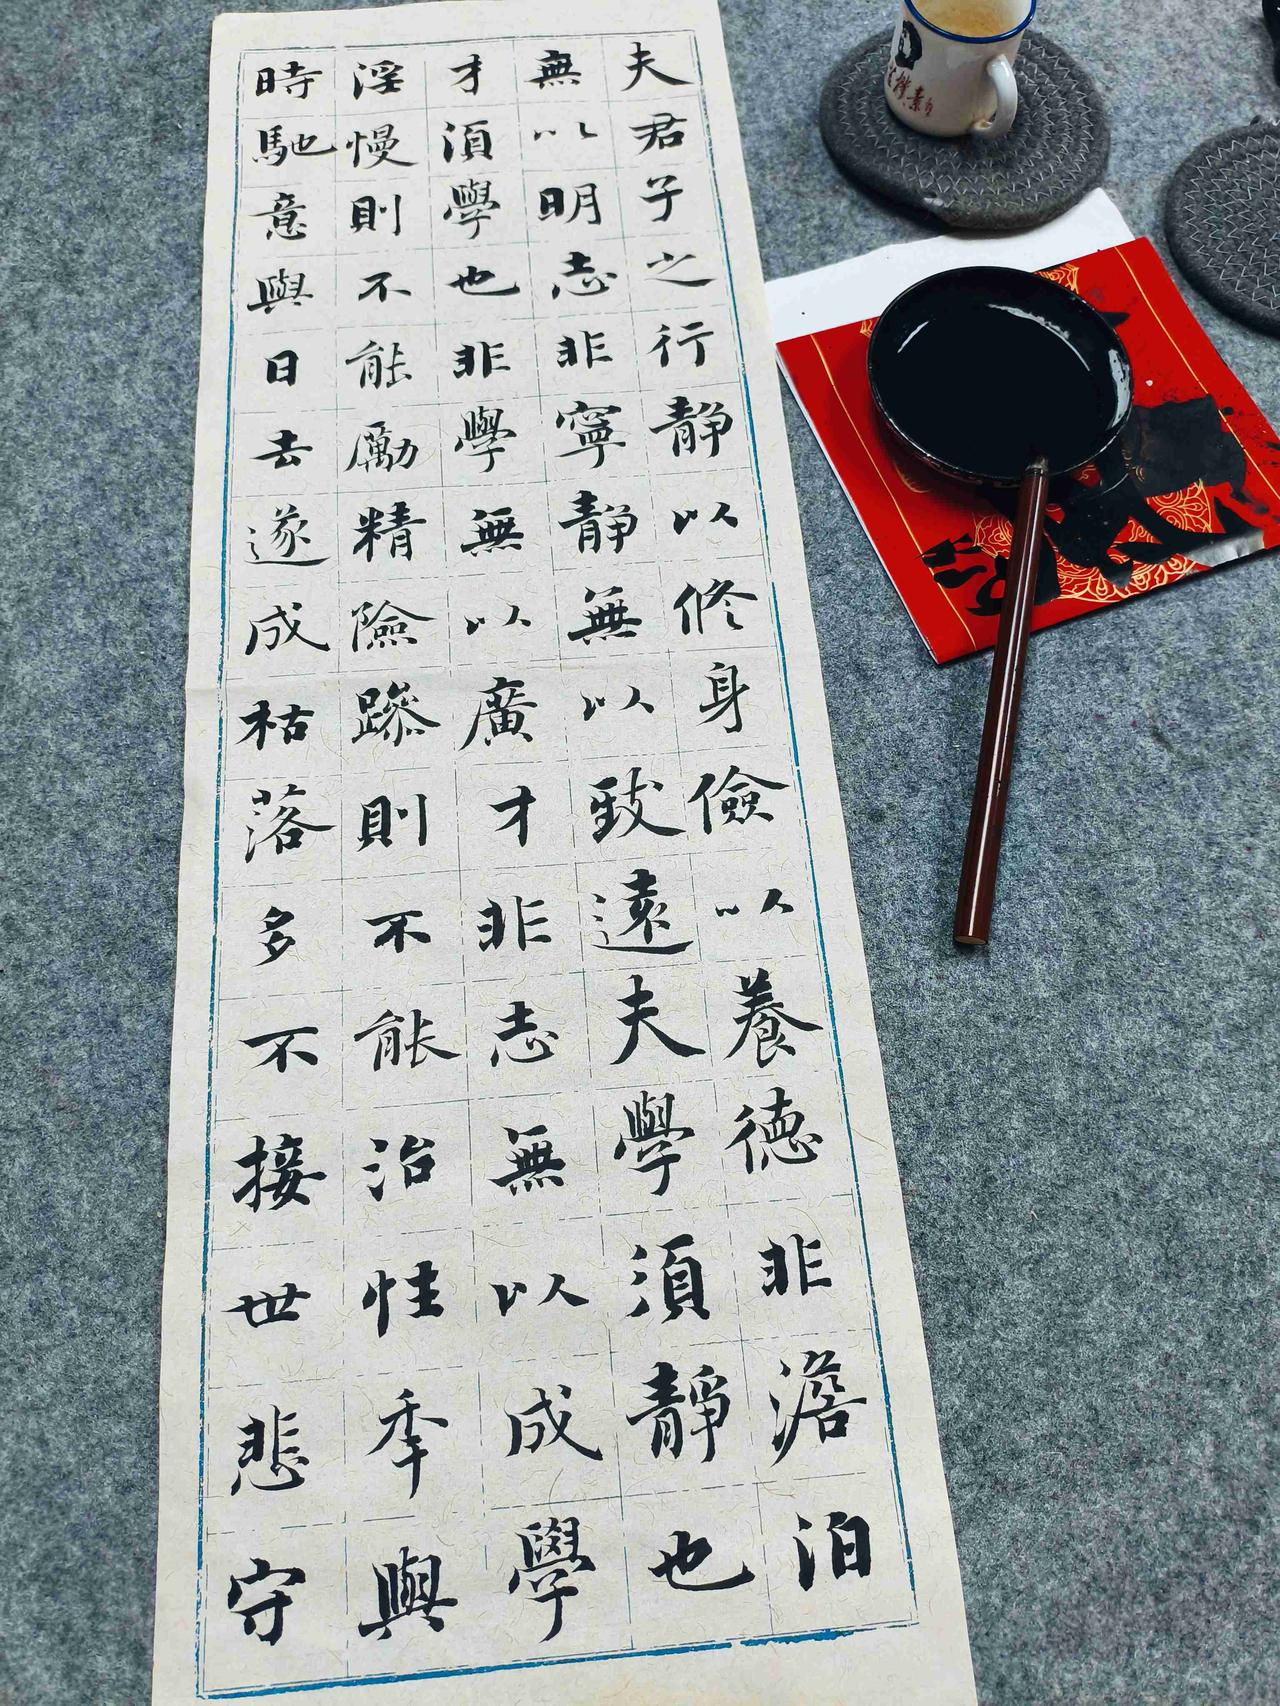 夫君子之行靜以修身儉以養德非澹泊
無以明志非寧靜無以致遠夫學須靜也
才須學也非學無以廣才非志無以成學
淫慢則不能勵精險躁則不能治性年與
時馳意與日去遂成枯落多不接世悲守